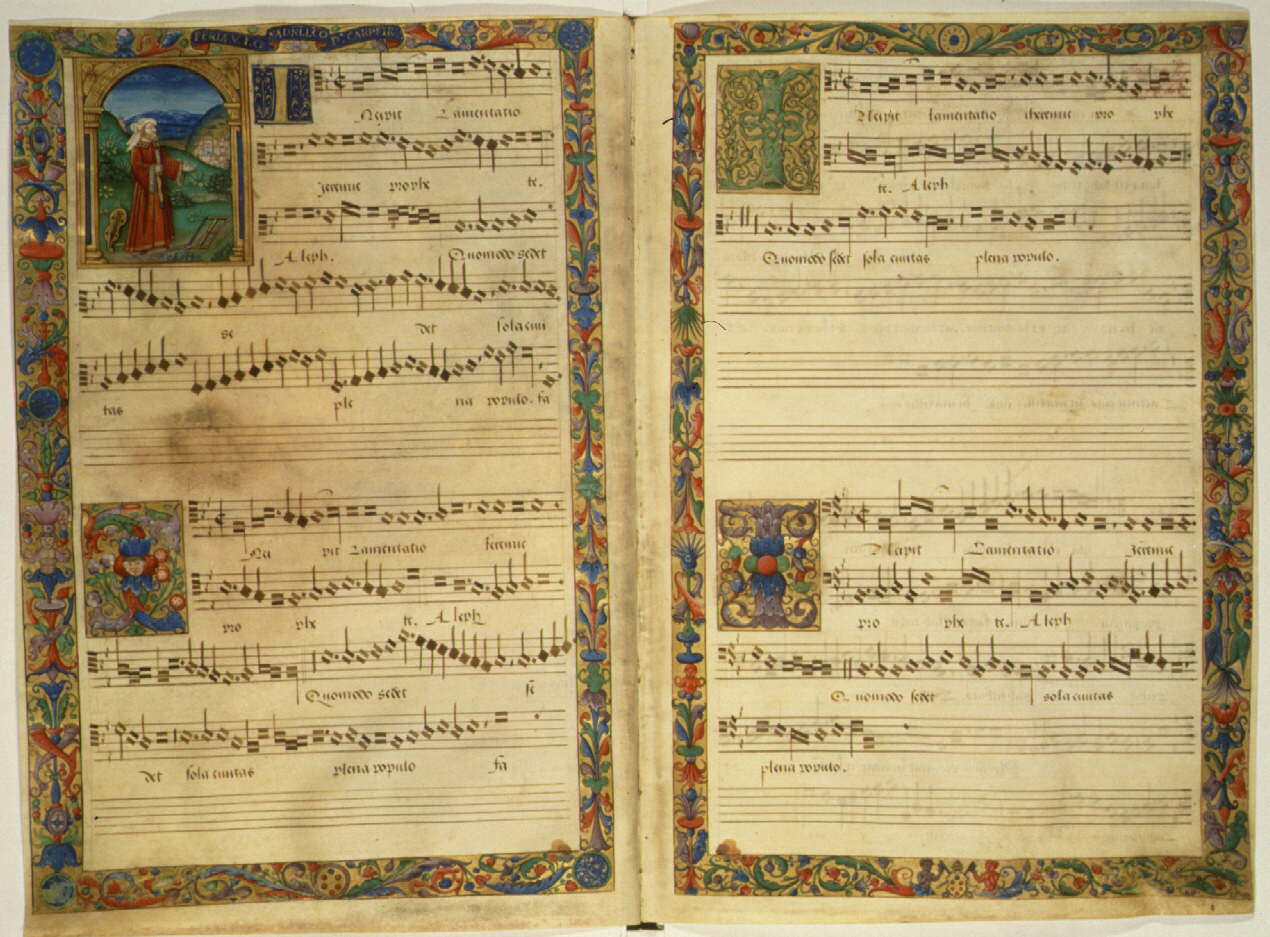 FERIA V I CO
I Ncipit Lamentatio
jeremie prophe te.
Aleph. Quomodo sedet
se det sola ciui
tas ple na populo. fa
I Nci pit Lamentatio Jeremie
pro phe te. Aleph
Quomodo sedet se
det sola ciuitas plena populo fa
I Ncipit lamentatio iheremie pro phe
te. Aleph
Quomodo sedet sola ciuitas plena populo.
I Ncipit Lamentatio Jeremie
pro phe te. Aleph
Quomodo sedet sola ciuitas
plena populo.